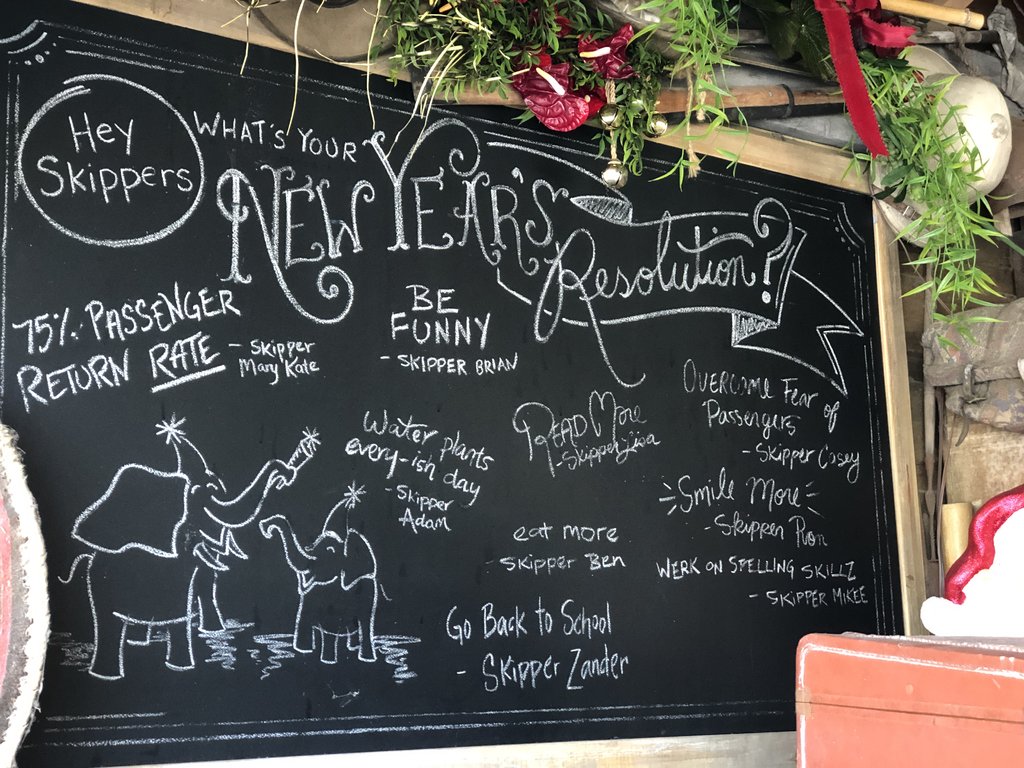 Hey
Skippers
WHAT'S YOUR
NEW YEAR'S
Resolution?
75% PASSENGER
RETURN RATE
- SKIPPER
Mary Kate
BE
FUNNY
- SKIPPER BRIAN
Water plants
every-ish day
- Skipper
Adam
READ More
- Skipper Lisa
OVERCOME Fear of
Passengers
- Skipper Casey
Smile More
- Skipper Ron
eat more
- skipper Ben
WERK ON SPELLING SKILLZ
- SKIPPER MIKEE
Go Back to School
- Skipper Zander